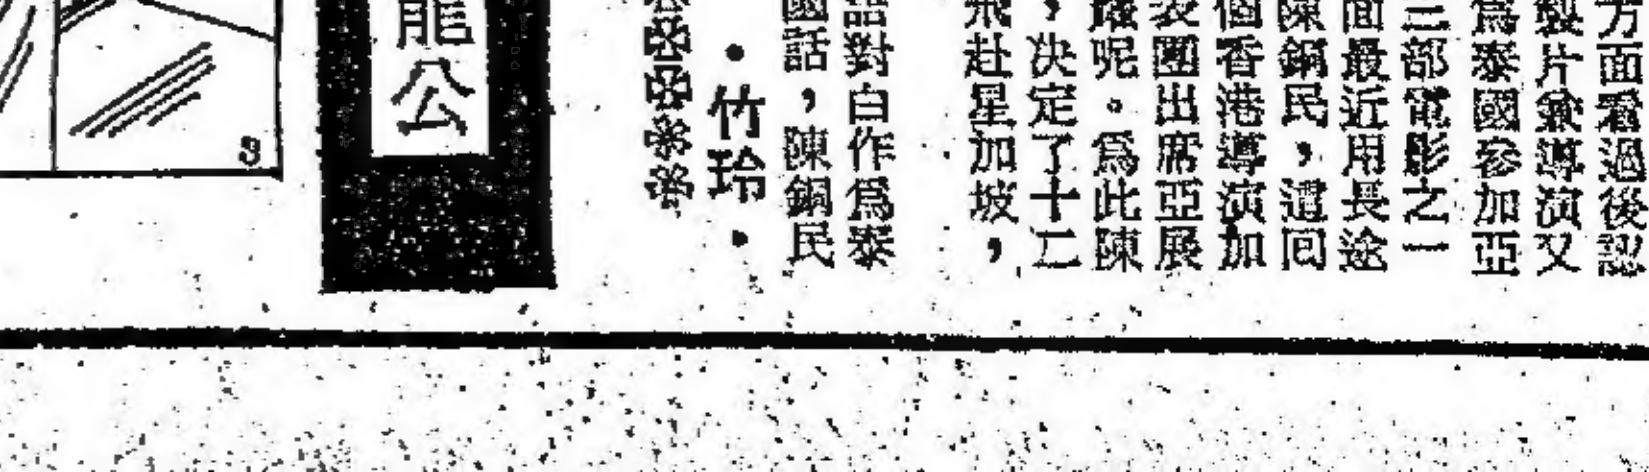 方面看過後認
製片兼導演又
爲泰國參加亞
三部電影之一
面最近用長途
陳銅民，這回
個香港導演加
表團出席亞展
呢。爲此陳
，决定了十二
飛赴星加坡，
語對白作爲泰
國話，陳銅民
・竹玲・
龍公
3